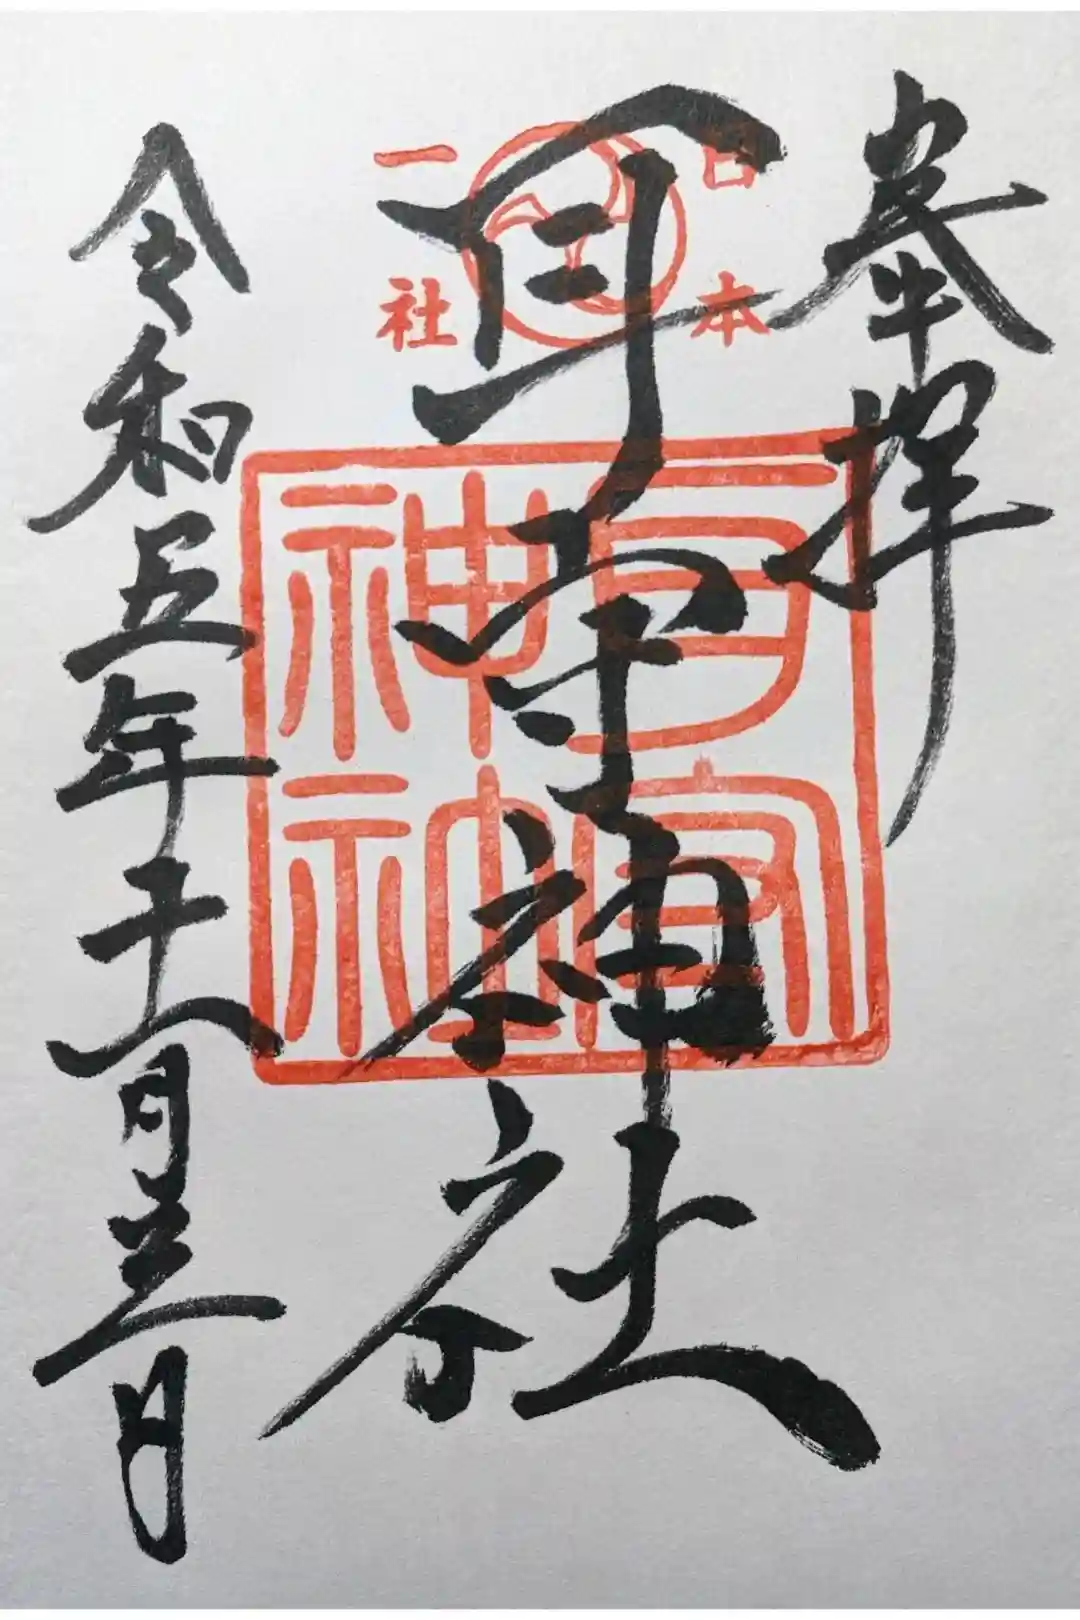 奉拝
日本
一社
耳守神社
耳守
神社
令和五年十一月三日